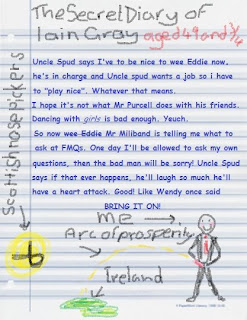 The Secret Diary of
Iain Gray aged 49 and 3/4
Scottish nose pickers
Uncle Spud says I've to be nice to wee Eddie now,
he's in charge and Uncle spud wants a job so i have
to "play nice". Whatever that means.
I hope it's not what Mr Purcell does with his friends.
Dancing with girls is bad enough. Yeuch.
So now wee Eddie Mr Miliband is telling me what to
ask at FMQs. One day I'll be allowed to ask my own
questions, then the bad man will be sorry! Uncle Spud
says if that ever happens, he'll laugh so much he'll
have a heart attack. Good! Like Wendy once said
BRING IT ON!
me
Arc of prosperity
Ireland